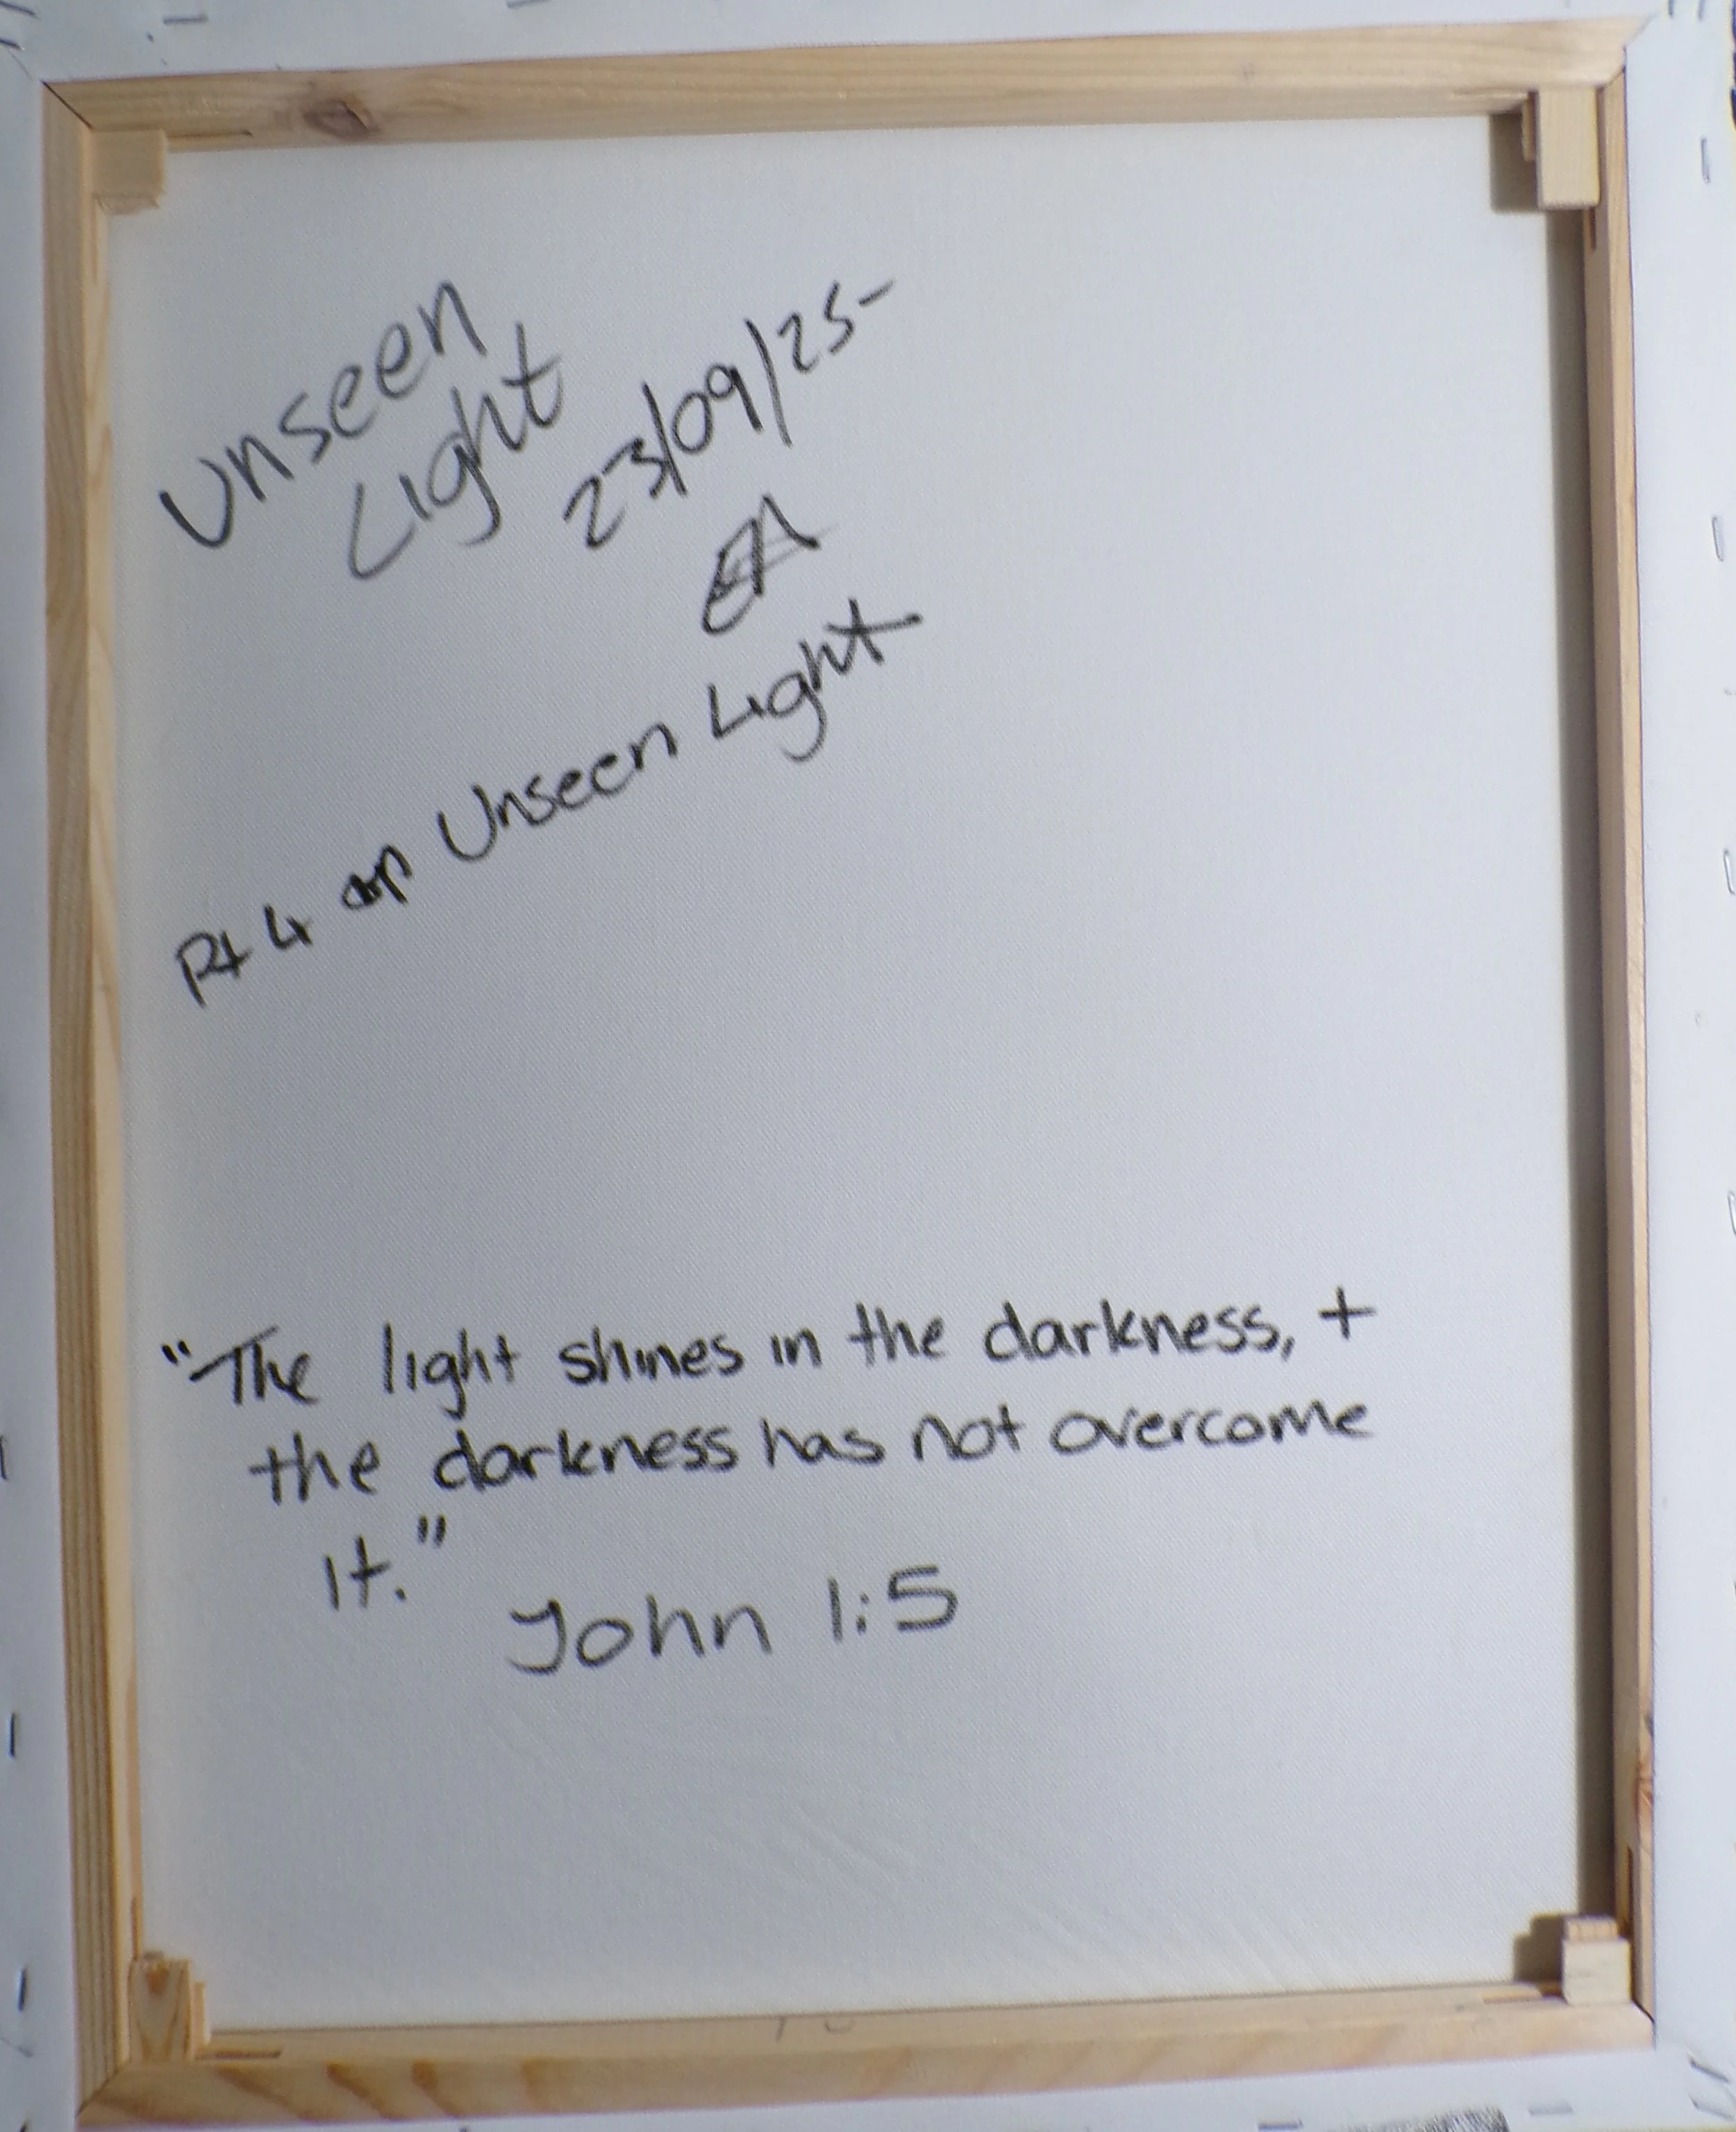 Unseen
Light
23/09/25-
EA
Pt 4 of Unseen Light
"The light shines in the darkness, +
the darkness has not overcome
it."
John 1:5